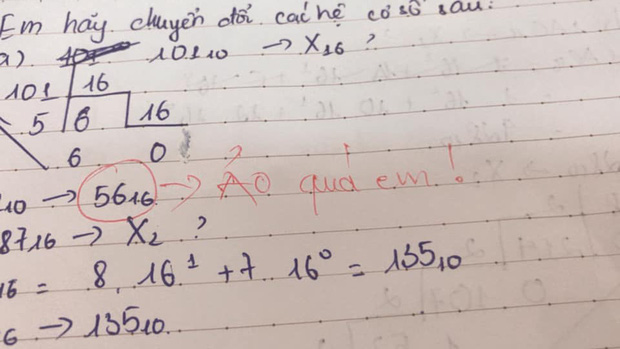 Em hãy chuyển đổi các hệ cơ số sau:
a) 101₁₀ → X₁₆ ?
101 16
5 6 16
6 0
₁₀ → 56₁₆ → Ảo quá em !
87₁₆ → X₂ ?
₁₆ = 8 . 16¹ + 7 16⁰ = 135₁₀
₆ → 135₁₀